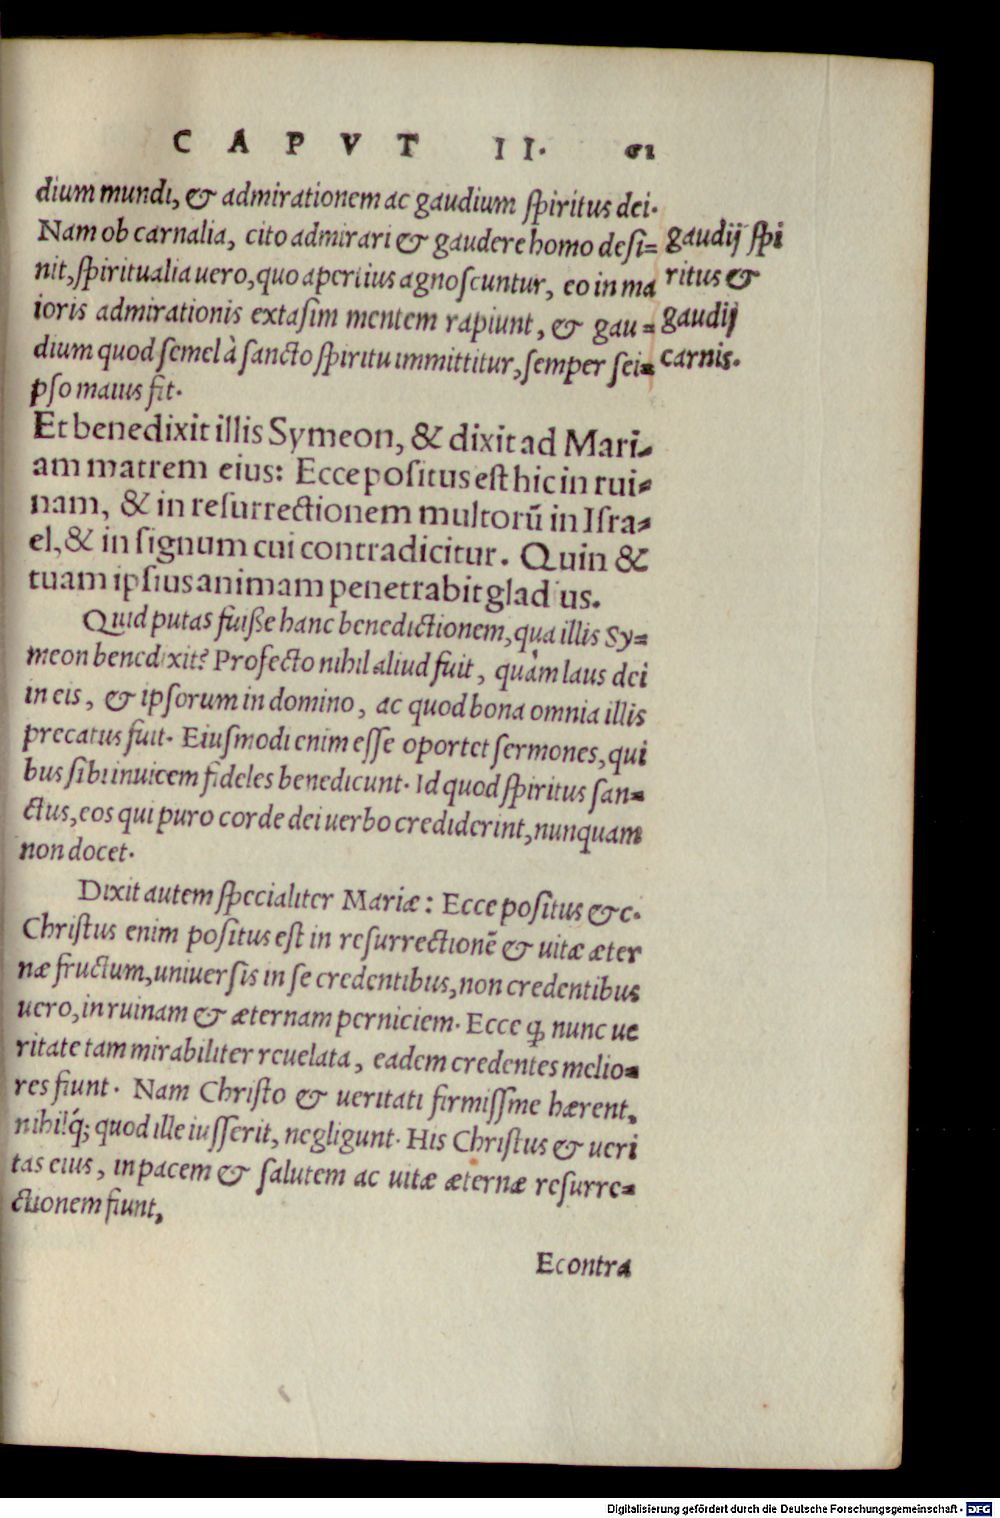 CAPVT II. 61
dium mundi, & admirationem ac gaudium spiritus dei.
Nam ob carnalia, cito admirari & gaudere homo desi-
nit, spiritualia uero, quo apertius agnoscuntur, eo in ma
ioris admirationis extasim mentem rapiunt, & gau-
dium quod semel à sancto spiritu immittitur, semper sei-
pso maius fit.
gaudij spi
ritus &
gaudij
carnis.
Et benedixit illis Symeon, & dixit ad Mari-
am matrem eius: Ecce positus est hic in rui-
nam, & in resurrectionem multorũ in Isra-
el, & in signum cui contradicitur. Quin &
tuam ipsius animam penetrabit glad ius.
Quid putas fuisse hanc benedictionem, qua illis Sy-
meon benedixit? Profecto nihil aliud fuit, quàm laus dei
in eis, & ipsorum in domino, ac quod bona omnia illis
precatus fuit. Eiusmodi enim esse oportet sermones, qui
bus sibi inuicem fideles benedicunt. Id quod spiritus san-
ctus, eos qui puro corde dei uerbo crediderint, nunquam
non docet.
Dixit autem specialiter Mariæ: Ecce positus &c.
Christus enim positus est in resurrectionẽ & uitæ æter
næ fructum, uniuersis in se credentibus, non credentibus
uero, in ruinam & æternam perniciem. Ecce ꝙ nunc ue
ritate tam mirabiliter reuelata, eadem credentes melio-
res fiunt. Nam Christo & ueritati firmissme hærent,
nihilq́; quod ille iusserit, negligunt. His Christus & ueri
tas eius, in pacem & salutem ac uitæ æternæ resurre-
ctionem fiunt,
Econtra
Digitalisierung gefördert durch die Deutsche Forschungsgemeinschaft - DFG